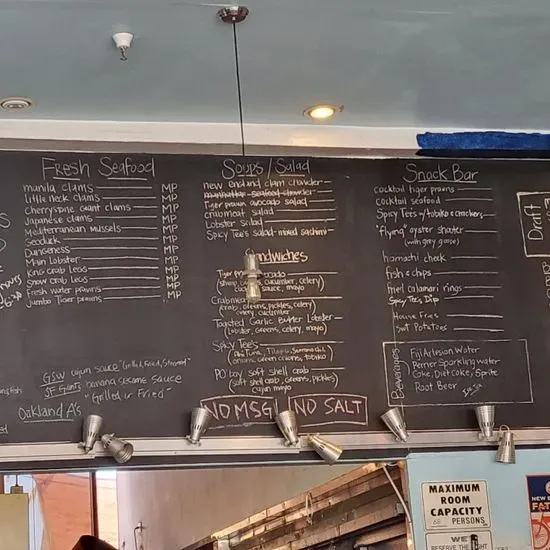 Fresh Seafood
manila clams MP
little neck clams MP
cherrystone giant clams MP
Japanese clams MP
Mediterranean mussels MP
Geoduck MP
Dungeness MP
Main Lobster MP
King Crab Legs MP
Snow Crab Legs MP
Fresh water prawns MP
Jumbo Tiger prawns MP
GSW cajun sauce "Grilled, Fried, Steamed"
SF Giants banana sesame sauce
"Grilled or Fried"
Oakland A's
Soups/Salad
new england clam chowder
manhattan seafood chowder
Tiger prawn avocado salad
crabmeat salad
Lobster salad
Spicy Tee's salad-mixed sashimi
Sandwiches
Tiger Prawn Avocado
cucumber, celery)
sauce, mayo
Crabmeat
(crab, greens, pickles, celery)
cucumber
Toasted Garlic Butter Lobster
(lobster, greens, celery, mayo)
Spicy Tee's
green onions, tobiko
PO boy soft shell crab
(soft shell crab, greens, pickles)
cajun mayo
NO MSG NO SALT
Snack Bar
cocktail tiger prawns
cocktail seafood
Spicy Tee's w/tobiko & crackers
"flying" oyster shooter
(with grey goose)
hamachi cheek
fish & chips
fried calamari rings
Spicy Tee's Dip
House Fries
Swt Potatoes
Beverages
Fiji Artesian Water
Perrier Sparkling water
Coke, Diet coke, Sprite
Root Beer
Draft
MAXIMUM
ROOM
CAPACITY
68 PERSONS
WE
RESERVE THE RIGHT
NEW E
FAT